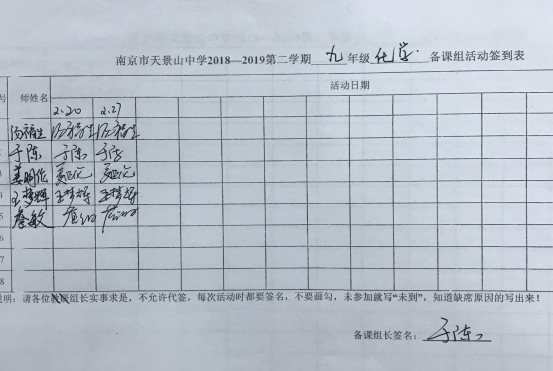 南京市天景山中学2018—2019第二学期 九 年级 化学 备课组活动签到表
号 师姓名 活动日期
2.20 2.27
汤福生
于陈 于陈 于陈
姜明化
王梦娜 王梦娜 王梦娜
5 詹敏
6
7
8
说明：请各位教研组长实事求是，不允许代签，每次活动时都要签名，不要画勾，未参加就写“未到”，知道缺席原因的写出来！
备课组长签名： 于陈